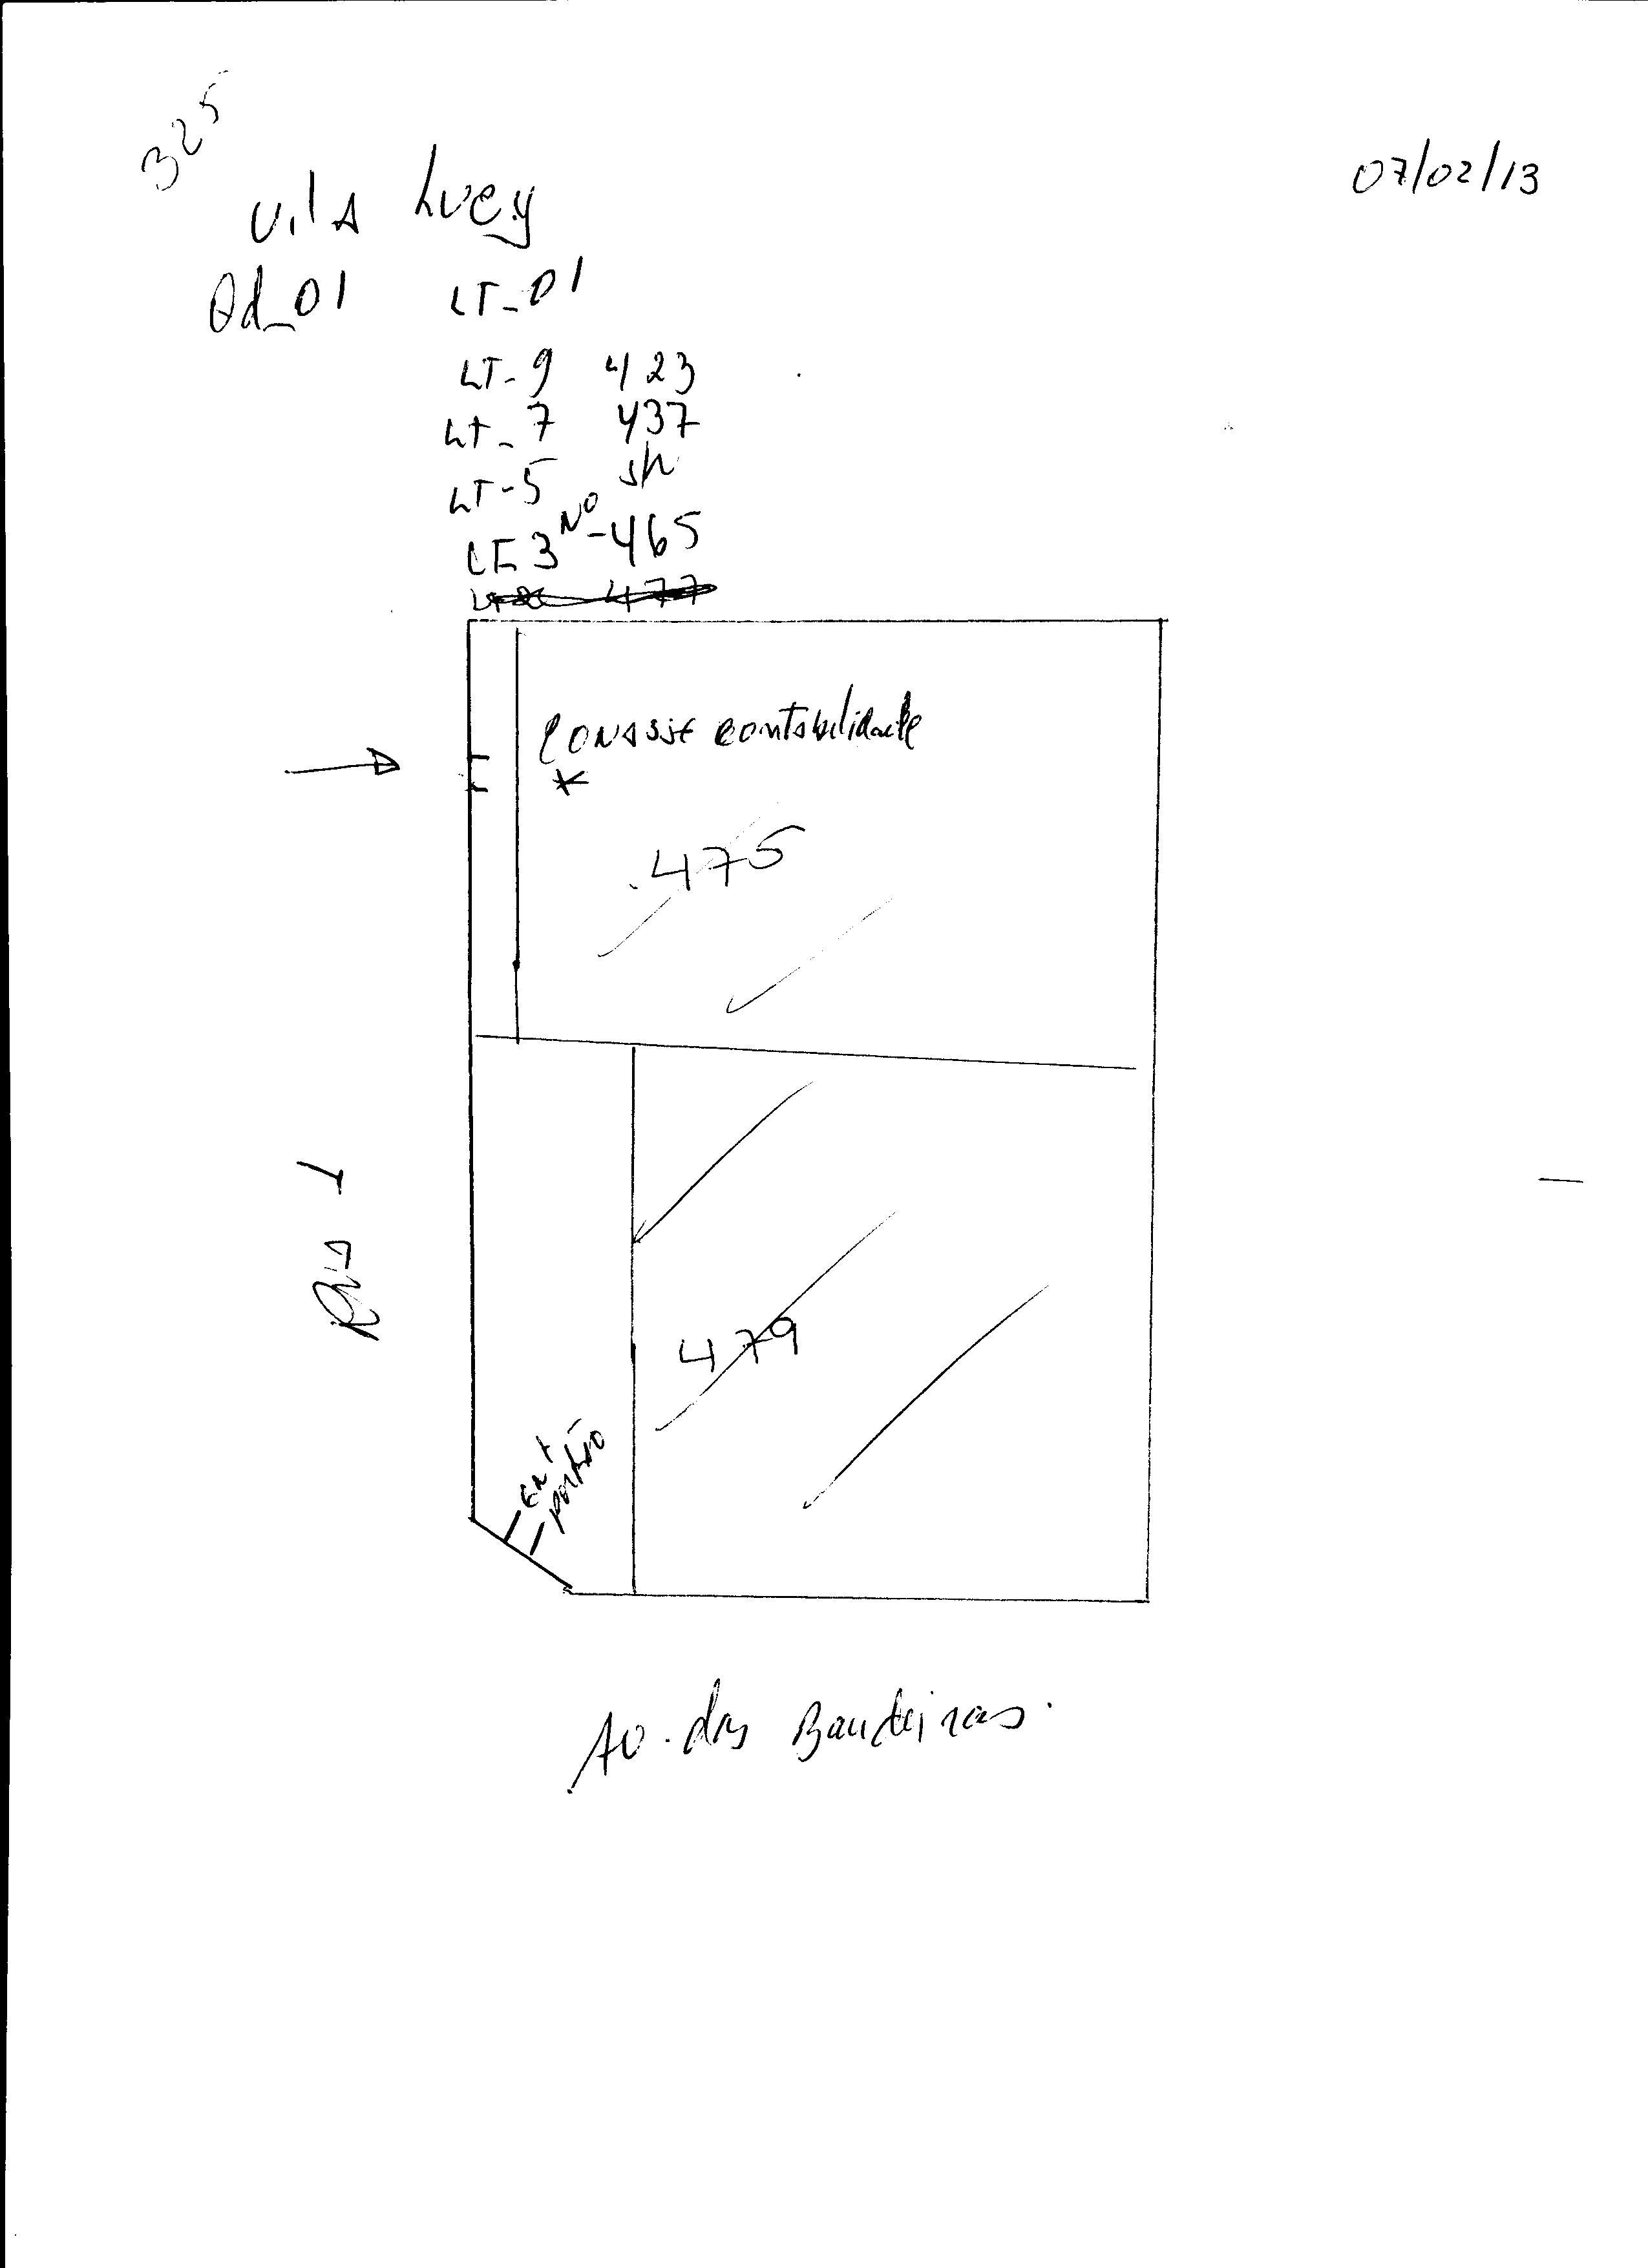 325
07/02/13
Vila Lucy
Qd_01 LT_01
LT-9 423
LT-7 437
LT-5 s/n
LT-3 Nº-465
477
CONASSE contabilidade
*
.475
Rua 1
479
Ent
portão
Av. das Bandeiras.